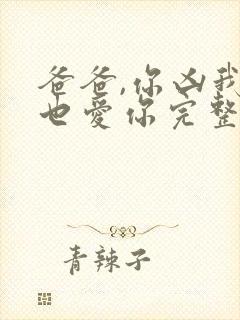 爸爸,你凶我
也爱你完整
青辣子